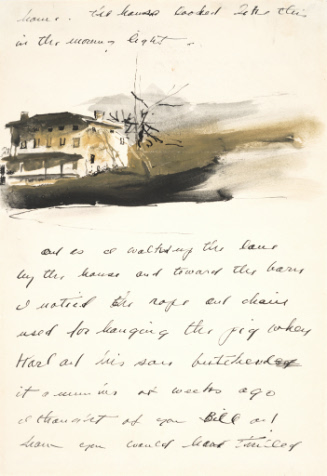 home. The house looked like this
in the morning light.
and as I walked up the lane
by the house and toward the barn
I noticed the rope and chain
used for hanging the pig when
Karl and his son butchered
it a
weeks ago
I thought of you Bill and
how you would have